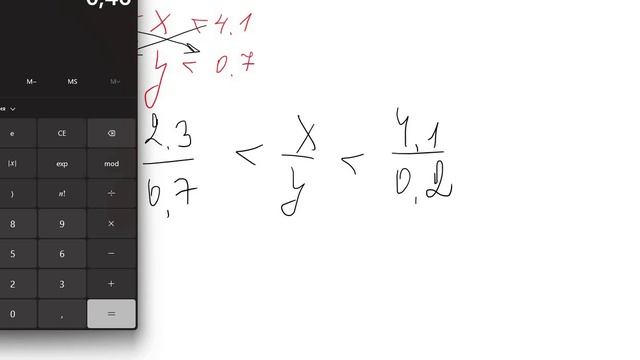 x < 4,1
y < 0,7
2,3 / 0,7 < x / y < 4,1 / 0,2
M− MS M˅
e CE ⌫
|x| exp mod
) n! ÷
8 9 ×
5 6 −
2 3 +
0 , =